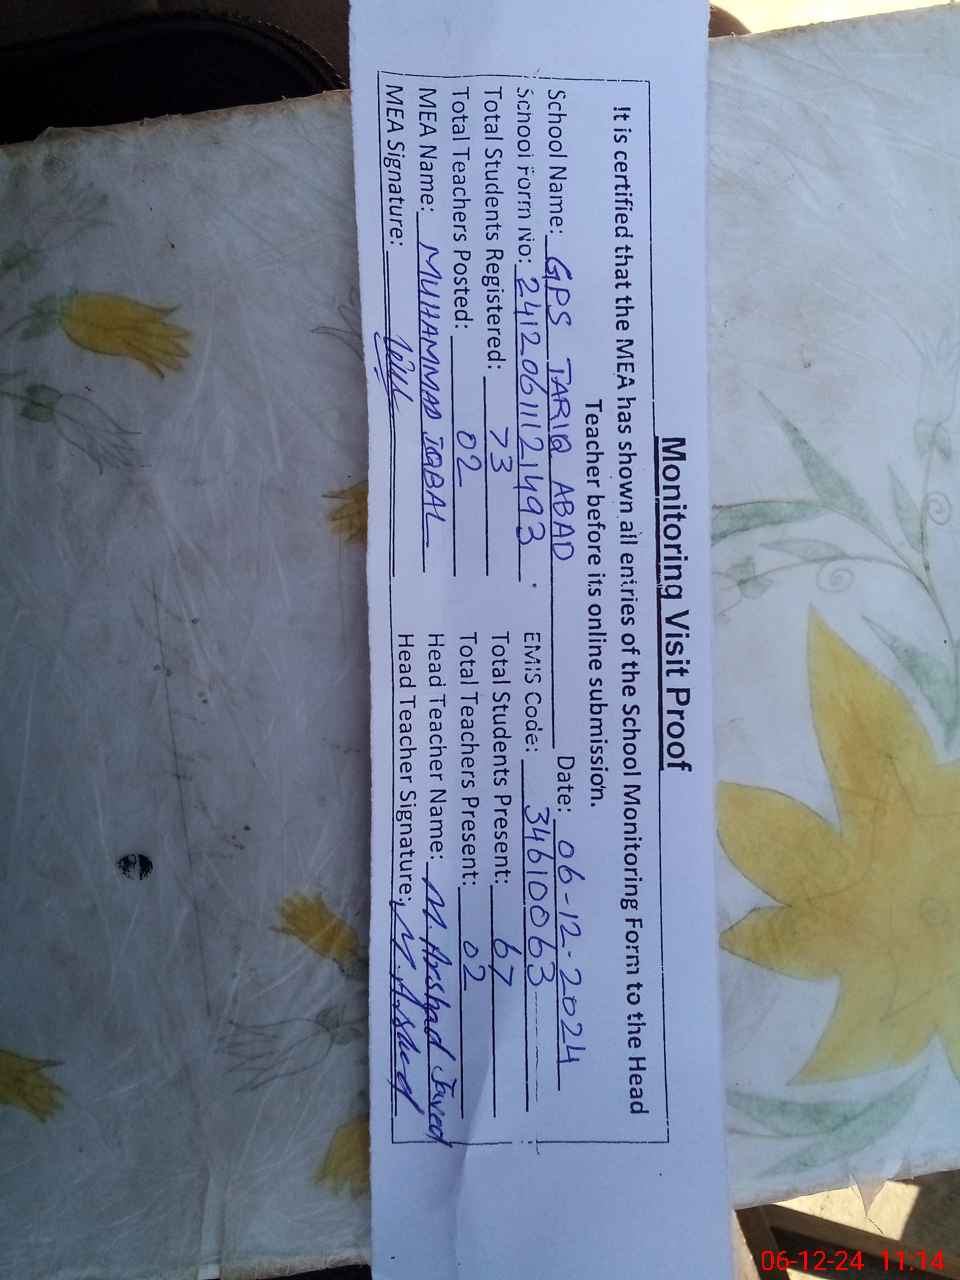 Monitoring Visit Proof
It is certified that the MEA has shown all entries of the School Monitoring Form to the Head
Teacher before its online submission.
School Name: GPS TARIQ ABAD Date: 06-12-2024
School Form No: 2412061121493 EMIS Code: 34610063
Total Students Registered: 73 Total Students Present: 67
Total Teachers Posted: 02 Total Teachers Present: 02
MEA Name: MUHAMMAD IQBAL Head Teacher Name: M. Arshad Javed
MEA Signature: Head Teacher Signature: M. Arshad
06-12-24 11:14